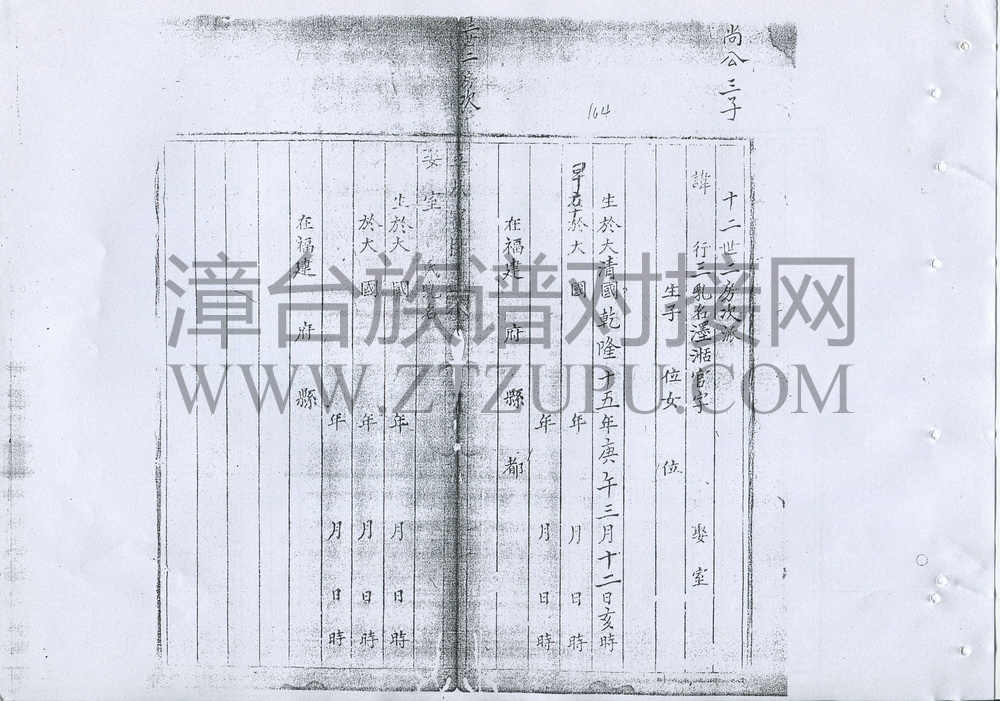 尚公三子
164
十二世二房次派
諱 行三乳名溼湉官字 娶室
生子 位女 位
生於大清國乾隆十五年庚午三月十二日亥時
早於大 國 年 月 日 時
年 月 日 時
在福建 府 縣 都
世二房次
娶室 氏乳名
生於大 國 年 月 日 時
於大 國 年 月 日 時
年 月 日 時
在福建 府 縣
漳台族谱对接网
WWW.ZTZUPU.COM